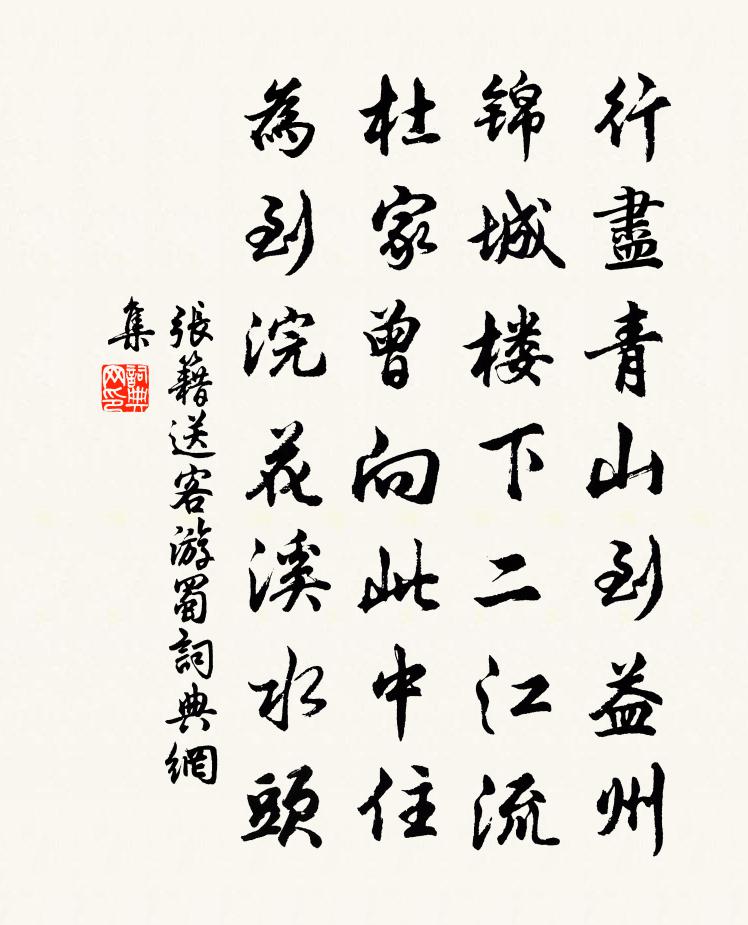 行盡青山到益州
锦城楼下二江流
杜家曾向此中住
為到浣花溪水頭
張籍送客游蜀詞典網
集
詞典网印